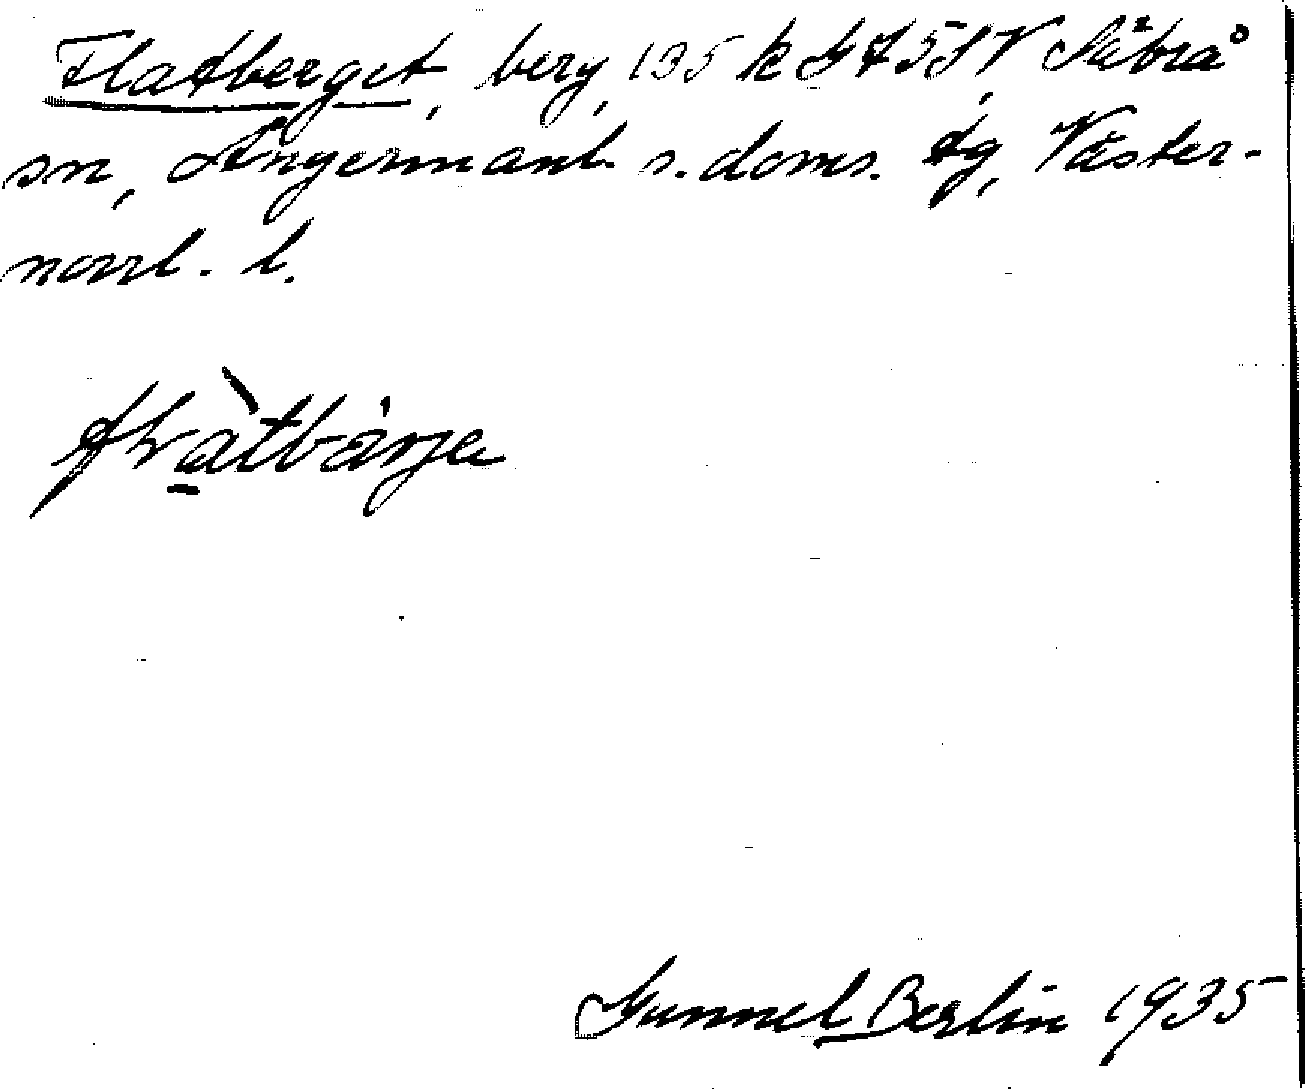 Flatberget, berg, 135 k G A 5 SV, Säbrå
sn, Ångermanl. s. doms. tg, Väster-
norrl. l.
flàtbärje
Gunnel Berlin 1935